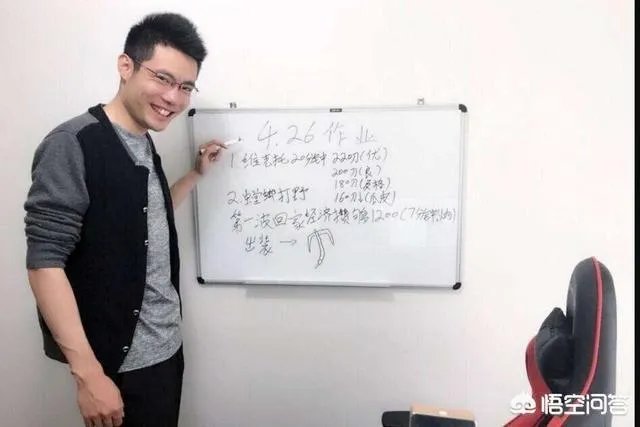 4.26作业
1.维克托20分钟 220刀(优)
200刀(良)
180刀(及格)
160刀↓(水皮)
2.螳螂打野
第一波回家经济攒够1200(7分钟内)
出装→
悟空问答